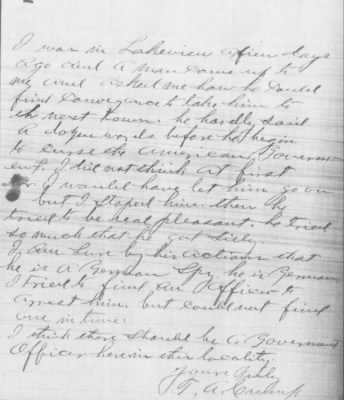 I was in Lakeview a few days
ago and a man came up to
me and asked me how he could
find conveyance to take him to
the next town. he hardly said
a dozen words before he begin
to curse the American Governm
ent. I did not think at first
or I would have let him go on
but I stoped him. then he
tried to be real pleasant. he tried
so much that he got silly
I am sure by his actions that
he is a German Spy. he is German
I tried to find an officer to
arrest him. but could not find
one in time.
I think there should be a Government
Officer here in this locality.
Yours truly
T. A.